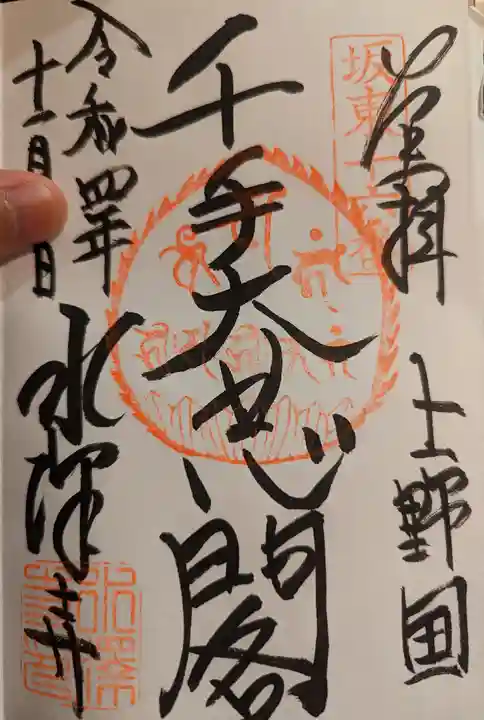 奉拝
上野国
坂東十六番
千手大悲閣
令和四年
十一月 日
水澤寺